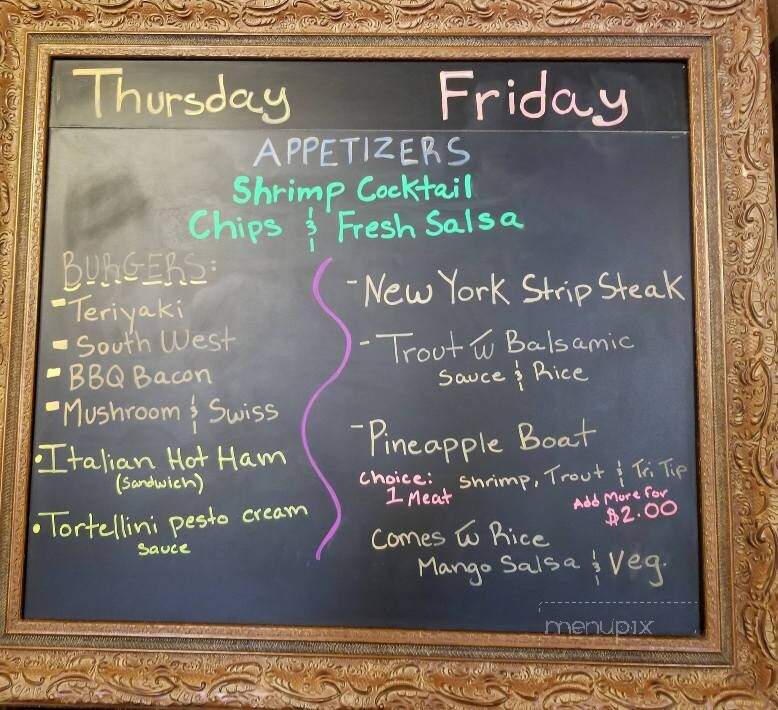 Thursday Friday
APPETIZERS
Shrimp Cocktail
Chips & Fresh Salsa
BURGERS:
- Teriyaki
- South West
- BBQ Bacon
- Mushroom & Swiss
• Italian Hot Ham
(Sandwich)
• Tortellini pesto cream
sauce
- New York Strip Steak
- Trout w Balsamic
Sauce & Rice
- Pineapple Boat
Choice: Shrimp, Trout & Tri Tip
1 Meat
Add More for
$2.00
Comes w Rice
Mango Salsa & Veg.
menupix